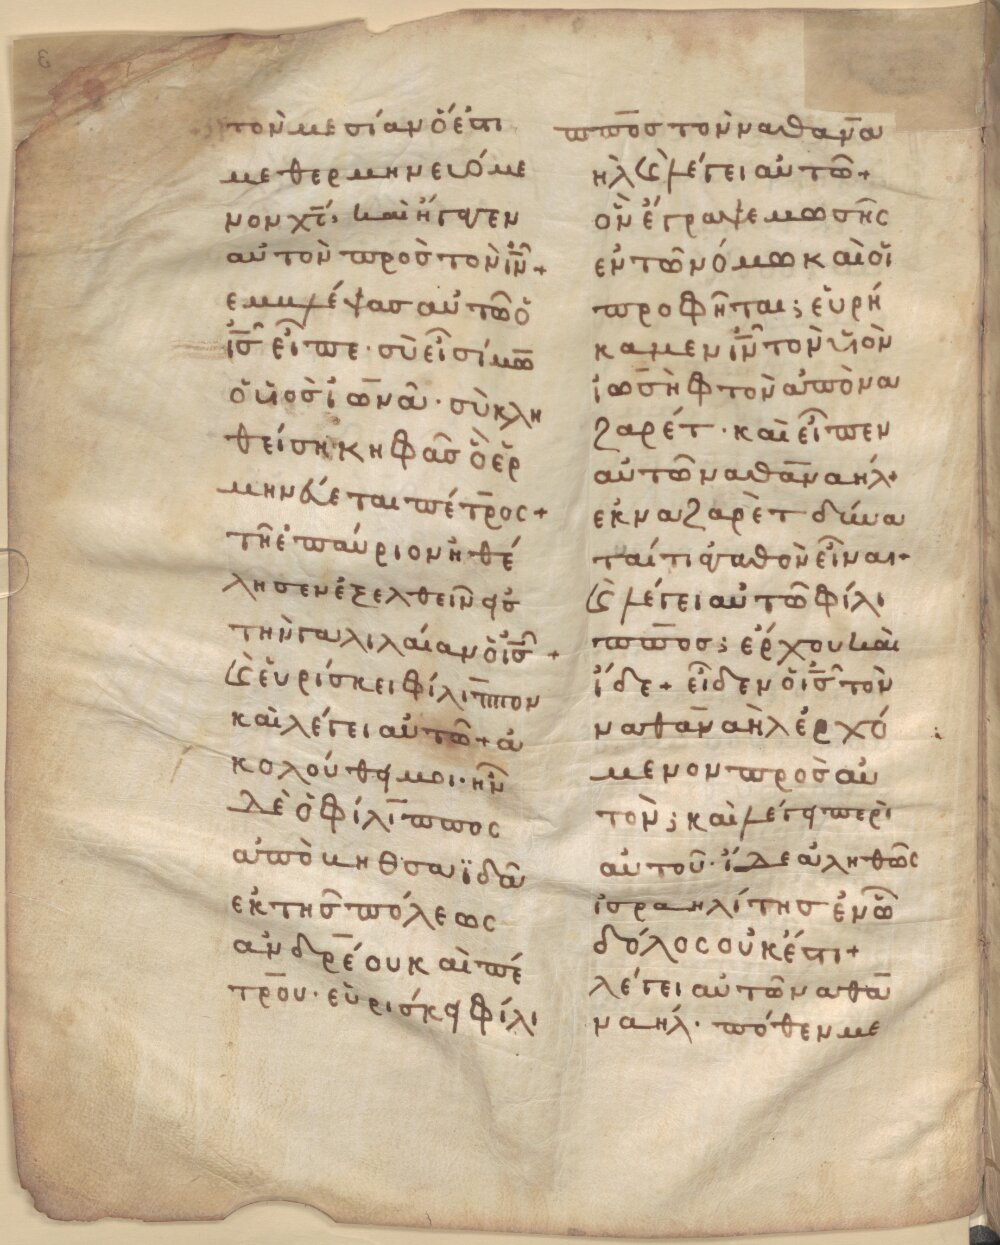 τὸν μεσίαν ὅ ἐστι
μεθερμηνευόμε
νον χς̄· καὶ ἤγαγεν
αὐτὸν πρὸς τὸν ἰν̄+
εμβλέψας αὐτῶ ὁ
ἰς̄ εἶπε· σὺ εἶ σίμων
ὁ υἱὸς ἰωνᾶ· σὺ κλη
θείση κηφᾶς ὃ ἑρ
μηνεύεται πέτρος+
τῆ ἐπαύριον ἠθέ
λησεν ἐξελθεῖν εἰς
τὴν γαλιλαίαν ὁ ἰς̄+
καὶ εὑρίσκει φίλιππον
καὶ λέγει αὐτῶ+ ἀ
κολούθει μοι· ἦν
δὲ ὁ φίλιππος
ἀπὸ βηθσαϊδᾶ
ἐκ τῆς πόλεως
ἀνδρέου καὶ πέ
τρου· εὑρίσκει φίλι
ππος τὸν ναθανα
ὴλ καὶ λέγει αὐτῶ+
ὃν ἔγραψε μωσῆς
ἐν τῶ νόμω καὶ οἱ
προφῆται; εὑρή
καμεν ἰν̄ τὸν υἱὸν
ἰωσὴφ τὸν ἀπὸ να
ζαρέτ· καὶ εἶπεν
αὐτῶ ναθαναήλ·
ἐκ ναζαρὲτ δύνα
ταί τι ἀγαθὸν εἶναι+
καὶ λέγει αὐτῶ φίλι
ππος; ἔρχου καὶ
ἴδε+ εἶδεν ὁ ἰς̄ τὸν
ναθαναὴλ ἐρχό
μενον πρὸς αὐ
τὸν; καὶ λέγει περὶ
αὐτοῦ· ἴδε ἀληθῶς
ἰσραηλίτης ἐν ὧ
δόλος οὐκ ἔστι+
λέγει αὐτῶ ναθα
ναήλ· πόθεν με